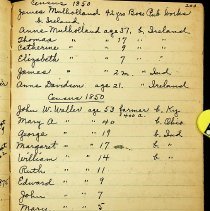 Census 1850
James Mulholland 42 yrs Boss Pub. Works
b. Ireland
Anne Mulholland age 37, b. Ireland
Thomas " 17 " "
Catherine " 9 " "
Elizabeth " 7 " "
James " 2 m. " Ind
Anna Davidson age 21. " Ireland
Census 1850
John W. Waller age 53 farmer b. Ky
Mary A " 40 b. Ohio
George " 19 b. Ind
Margaret " 17 b. "
William " 14 b. "
Ruth " 11
Edward " 9
John " 7
Mary " 5